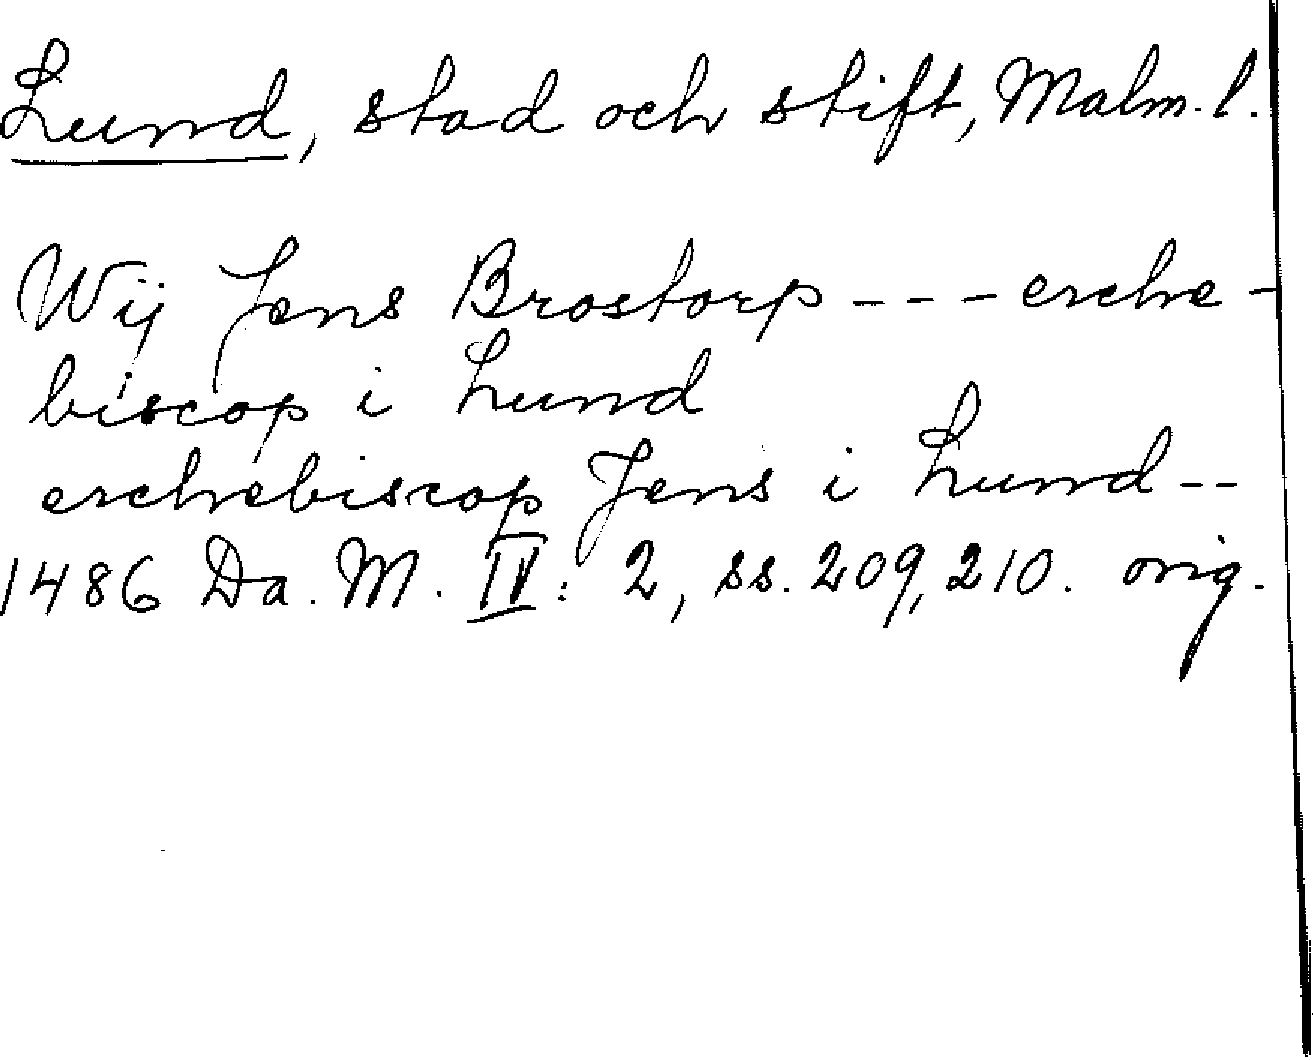 Lund, stad och stift, Malm. l.
Wij Jens Brostorp --- erche-
biscop i Lund
erchebiscop Jens i Lund--
1486 Da. M. IV: 2, ss. 209, 210. orig.